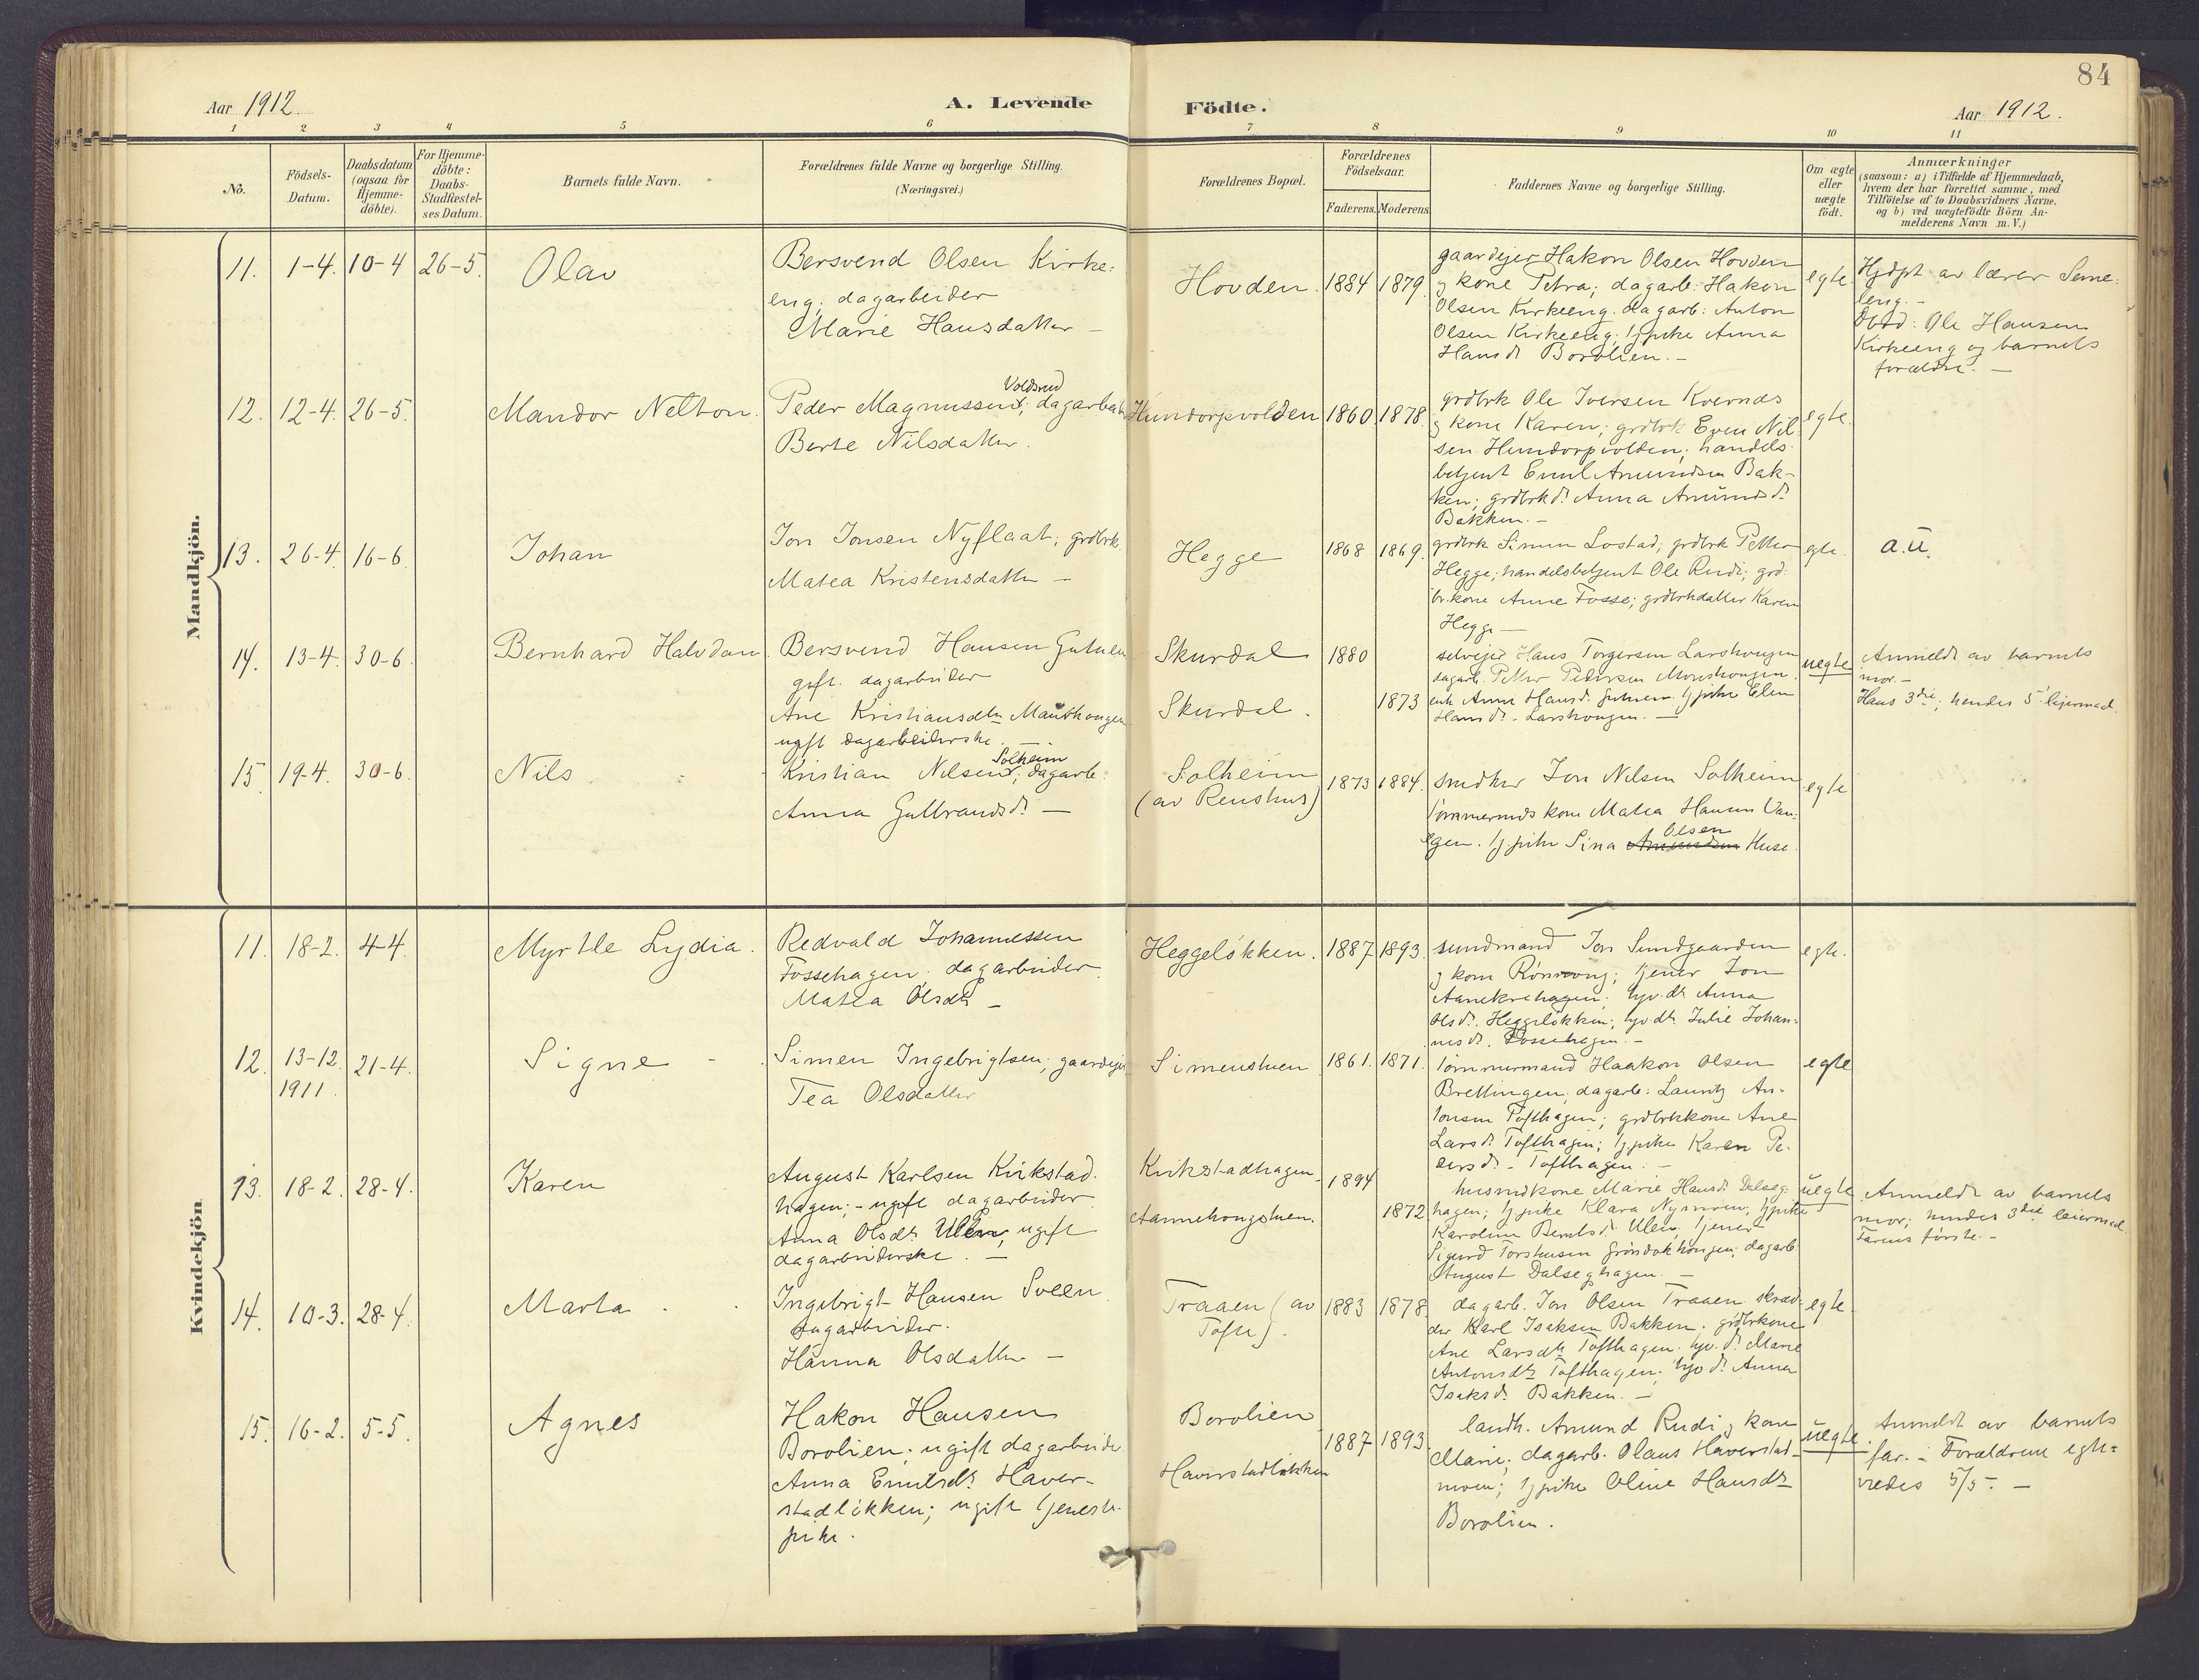 84
Aar 1912.
A. Levende
Födte.
Aar 1912.
1 2 3 4 5 6 7 8 9 10 11
No.
Födsels-
Datum.
Daabsdatum
(ogsaa for
Hjemme-
döbte).
For Hjemme-
döbte:
Daabs-
Stadfæstel-
ses Datum.
Barnets fulde Navn.
Forældrenes fulde Navne og borgerlige Stilling.
(Næringsvei.)
Forældrenes Bopæl.
Forældrenes
Födselsaar.
Faderens.
Moderens.
Faddernes Navne og borgerlige Stilling.
Om ægte
eller
uægte
födt.
Anmærkninger
(saasom: a) i Tilfælde af Hjemmedaab,
hvem der har forrettet samme, med
Tilföielse af to Daabsvidners Navne.
og b) ved uægtefödte Börn An-
melderens Navn m. V.)
Mandkjön.
11. 1-4. 10-4 26-5.
Olav
Bersvend Olsen Kirke:
eng; dagarbeider
Marie Hansdatter –
Hovden. 1884 1879.
gaardejer Hakon Olsen Hovden
og kone Petra; dagarb: Hakon
Olsen Kirkeeng. dagarb: Anton
Olsen Kirkeeng; tj pike Anna
Hansdr Borolien. –
egte.
Hjdpt av lærer Seme:
leng. –
Ole Hansen
Kirkeeng og barnets
forældre. –
12. 12-4. 26-5.
Mandor Nelton.
Voldsrud
Peder Magnussen; dagarbeid
Berte Nilsdatter.
Hundorpvolden 1860 1878.
grdbrk Ole Iversen Kvernas
og kone Karen; grdbrk Even Nil-
sen Hundorpvolden; handels-
betjent Emil Amundsen Bak-
ken; grdbrkdr Anna Amundsdr
Bakken. –
egte.
13. 26-4. 16-6.
Johan
Jon Jonsen Nyflaat; grdbrk.
Matea Kristensdatter –
Hegge 1868 1869.
grdbrk Simen Lostad; grdbrk Petter
Hegge; handelsbetjent Ole Rudi; grd-
br.kone Anne Fosse; grdbrkdatter Karen
Hegge –
egte.
a.u.
14. 13-4. 30-6.
Bernhard Halvdan.
Bersvend Hansen
gift. dagarbeider
Ane Kristiansdtr
ugift dagarbeiderske. –
Skurdal 1880
Skurdal. 1873
selvejer Hans Torgersen Larshougen
dagarb. Petter Pedersen
enk Anne Hansdr. tj pike Elen
Hansdr. Larshougen. –
uegte
Anmeldt av barnets
mor. –
Hans 3die; hendes 5' lejermaal.
15. 19-4. 30-6.
Nils
Solheim
Kristian Nilsen; dagarb.
Anna Gulbrandsdr –
Solheim
(av Renshus)
1873 1884.
snedker Jon Nilsen Solheim
tømmermds kone Matea Hansen Van-
gen. tj pike Sina
Olsen
Amundsen Huse.
egte
Kvindekjön
11. 18-2. 4-4.
Myrtle Lydia.
Redvald Johannessen
Fossehagen. dagarbeider.
Matea Olsdtr –
Heggeløkken. 1887 1893.
sundmand Jon Sundgaarden
og kone Rønnoug; tjener Jon
Aanekrehagen; hjv.dtr Anna
Olsdr. Heggeløkken; hjv dtr Julie Johan-
nesdr. Fossehagen. –
egte.
12. 13-12.
1911.
21-4.
Signe
Simen Ingebrigtsen; gaardejer
Tea Olsdatter
Simenstuen 1861. 1871.
Tømmermand Haakon Olsen
Brettingen; dagarb: Lauritz An-
tonsen Tofthagen; grdbrkkone Ane
Larsdr Tofthagen; tj pike Karen Pe-
dersdr. Tofthagen. –
egte
13. 18-2. 28-4.
Karen
August Karlsen Kvikstad-
hagen; – ugift dagarbeider
Anna Olsdtr Ulen, ugift
dagarbeiderske. –
Kvikstadhagen 1894
Aannehougstuen. 1872
husmdkone Marie Hansdr Dalseg-
hagen; tj pike Klara Nymoen; tj pike
Karoline Berntsdr Ulen; tjener
Sigurd Torstensen; dagarb.
August Dalseghagen. –
uegte
Anmeldt av barnets
mor; hendes 3die leiermaal
Farens første. –
14. 10-3. 28-4.
Marta
Ingebrigt Hansen Sveen.
Dagarbeider.
Hanna Olsdatter –
Traaen (av
Tofte).
1883 1878
dagarb. Jon Olsen Traaen skræd-
der Karl Isaksen Bakken. grdbrkone
Ane Larsdtr Tofthagen. hjv.dr Marie
Antonsdtr Tofthagen. hjv dr Anna
Isaksdr Bakken. –
egte.
15. 16-2. 5-5.
Agnes
Hakon Hansen
Borolien; ugift dagarbeider
Anna Emilsdtr Haver-
stadløkken; ugift tjeneste-
pike.
Borolien
Haverstadløkken
1887 1893.
landh. Amund Rudi og kone
Marie; dagarb. Olaus Haverstad-
moen; tj pike Oline Hansdtr
Borolien.
uegte.
Anmeldt av barnets
far. – Forældrene egte=
viedes 5/5. –